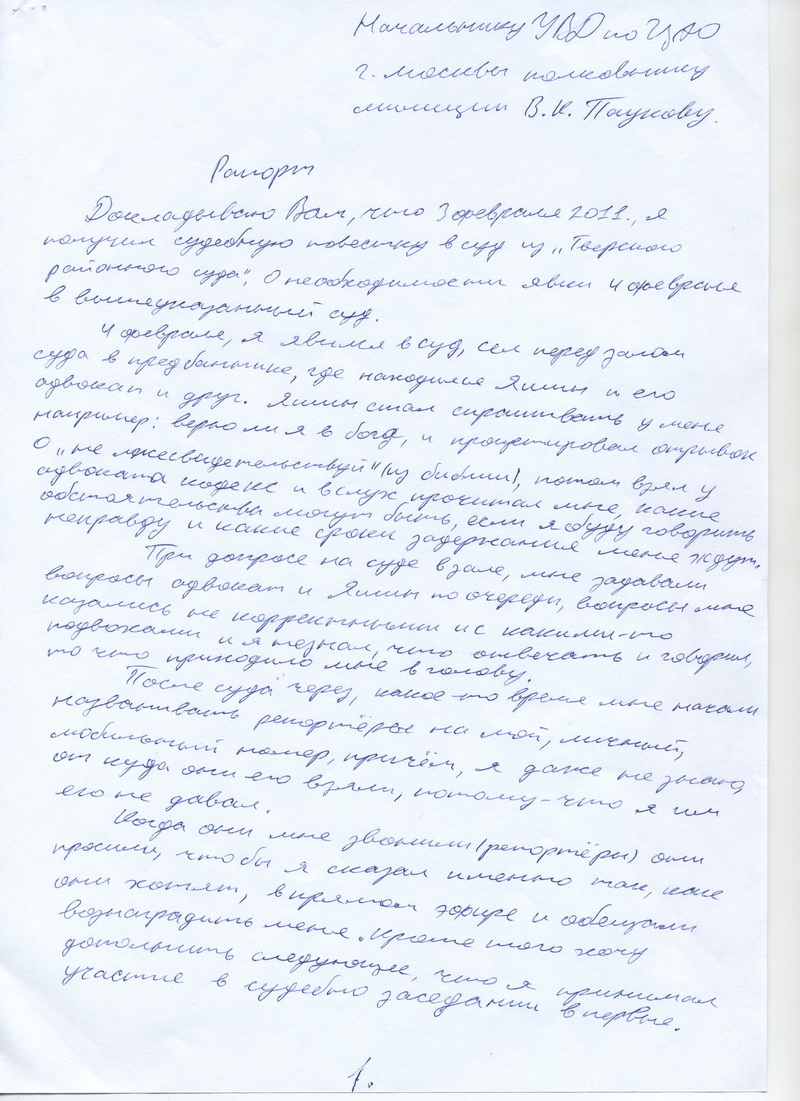 Начальнику УВД по ЦАО
г. Москвы полковнику
милиции В.К. Паукову.
Рапорт
Докладываю Вам, что 3 февраля 2011., я
получил судебную повестку в суд из „Тверского
районного суда", О необходимости явки 4 февраля
в вышеуказанный суд.
4 февраля, я явился в суд, сел перед залом
суда в предбаннике, где находился Яшин и его
адвокат и друг. Яшин стал спрашивать у меня
например: верю ли я в бога, и процитировал отрывок
О „не лжесвидетельствуй" (из библии), потом взял у
адвоката кодекс и вслух прочитал мне, какие
обстоятельства могут быть, если я буду говорить
неправду и какие сроки задержания меня ждут.
При допросе на суде в зале, мне задавали
вопросы адвокат и Яшин по очереди, вопросы мне
казались не корректными и с какими-то
подвохами и я незнал, что отвечать и говорил,
то что приходило мне в голову.
После суда через, какое-то время мне начали
названивать репортёры на мой, личный,
мобильный номер, причём, я даже не знаю,
от куда они его взяли, потому-что я им
его не давал.
Когда они мне звонили (репортёры) они
просили, что бы я сказал именно так, как
они хотят, в прямом эфире и обещали
вознаградить меня. Кроме того хочу
дополнить следующее, что я принимал
участие в судебно заседании в первые.
1.